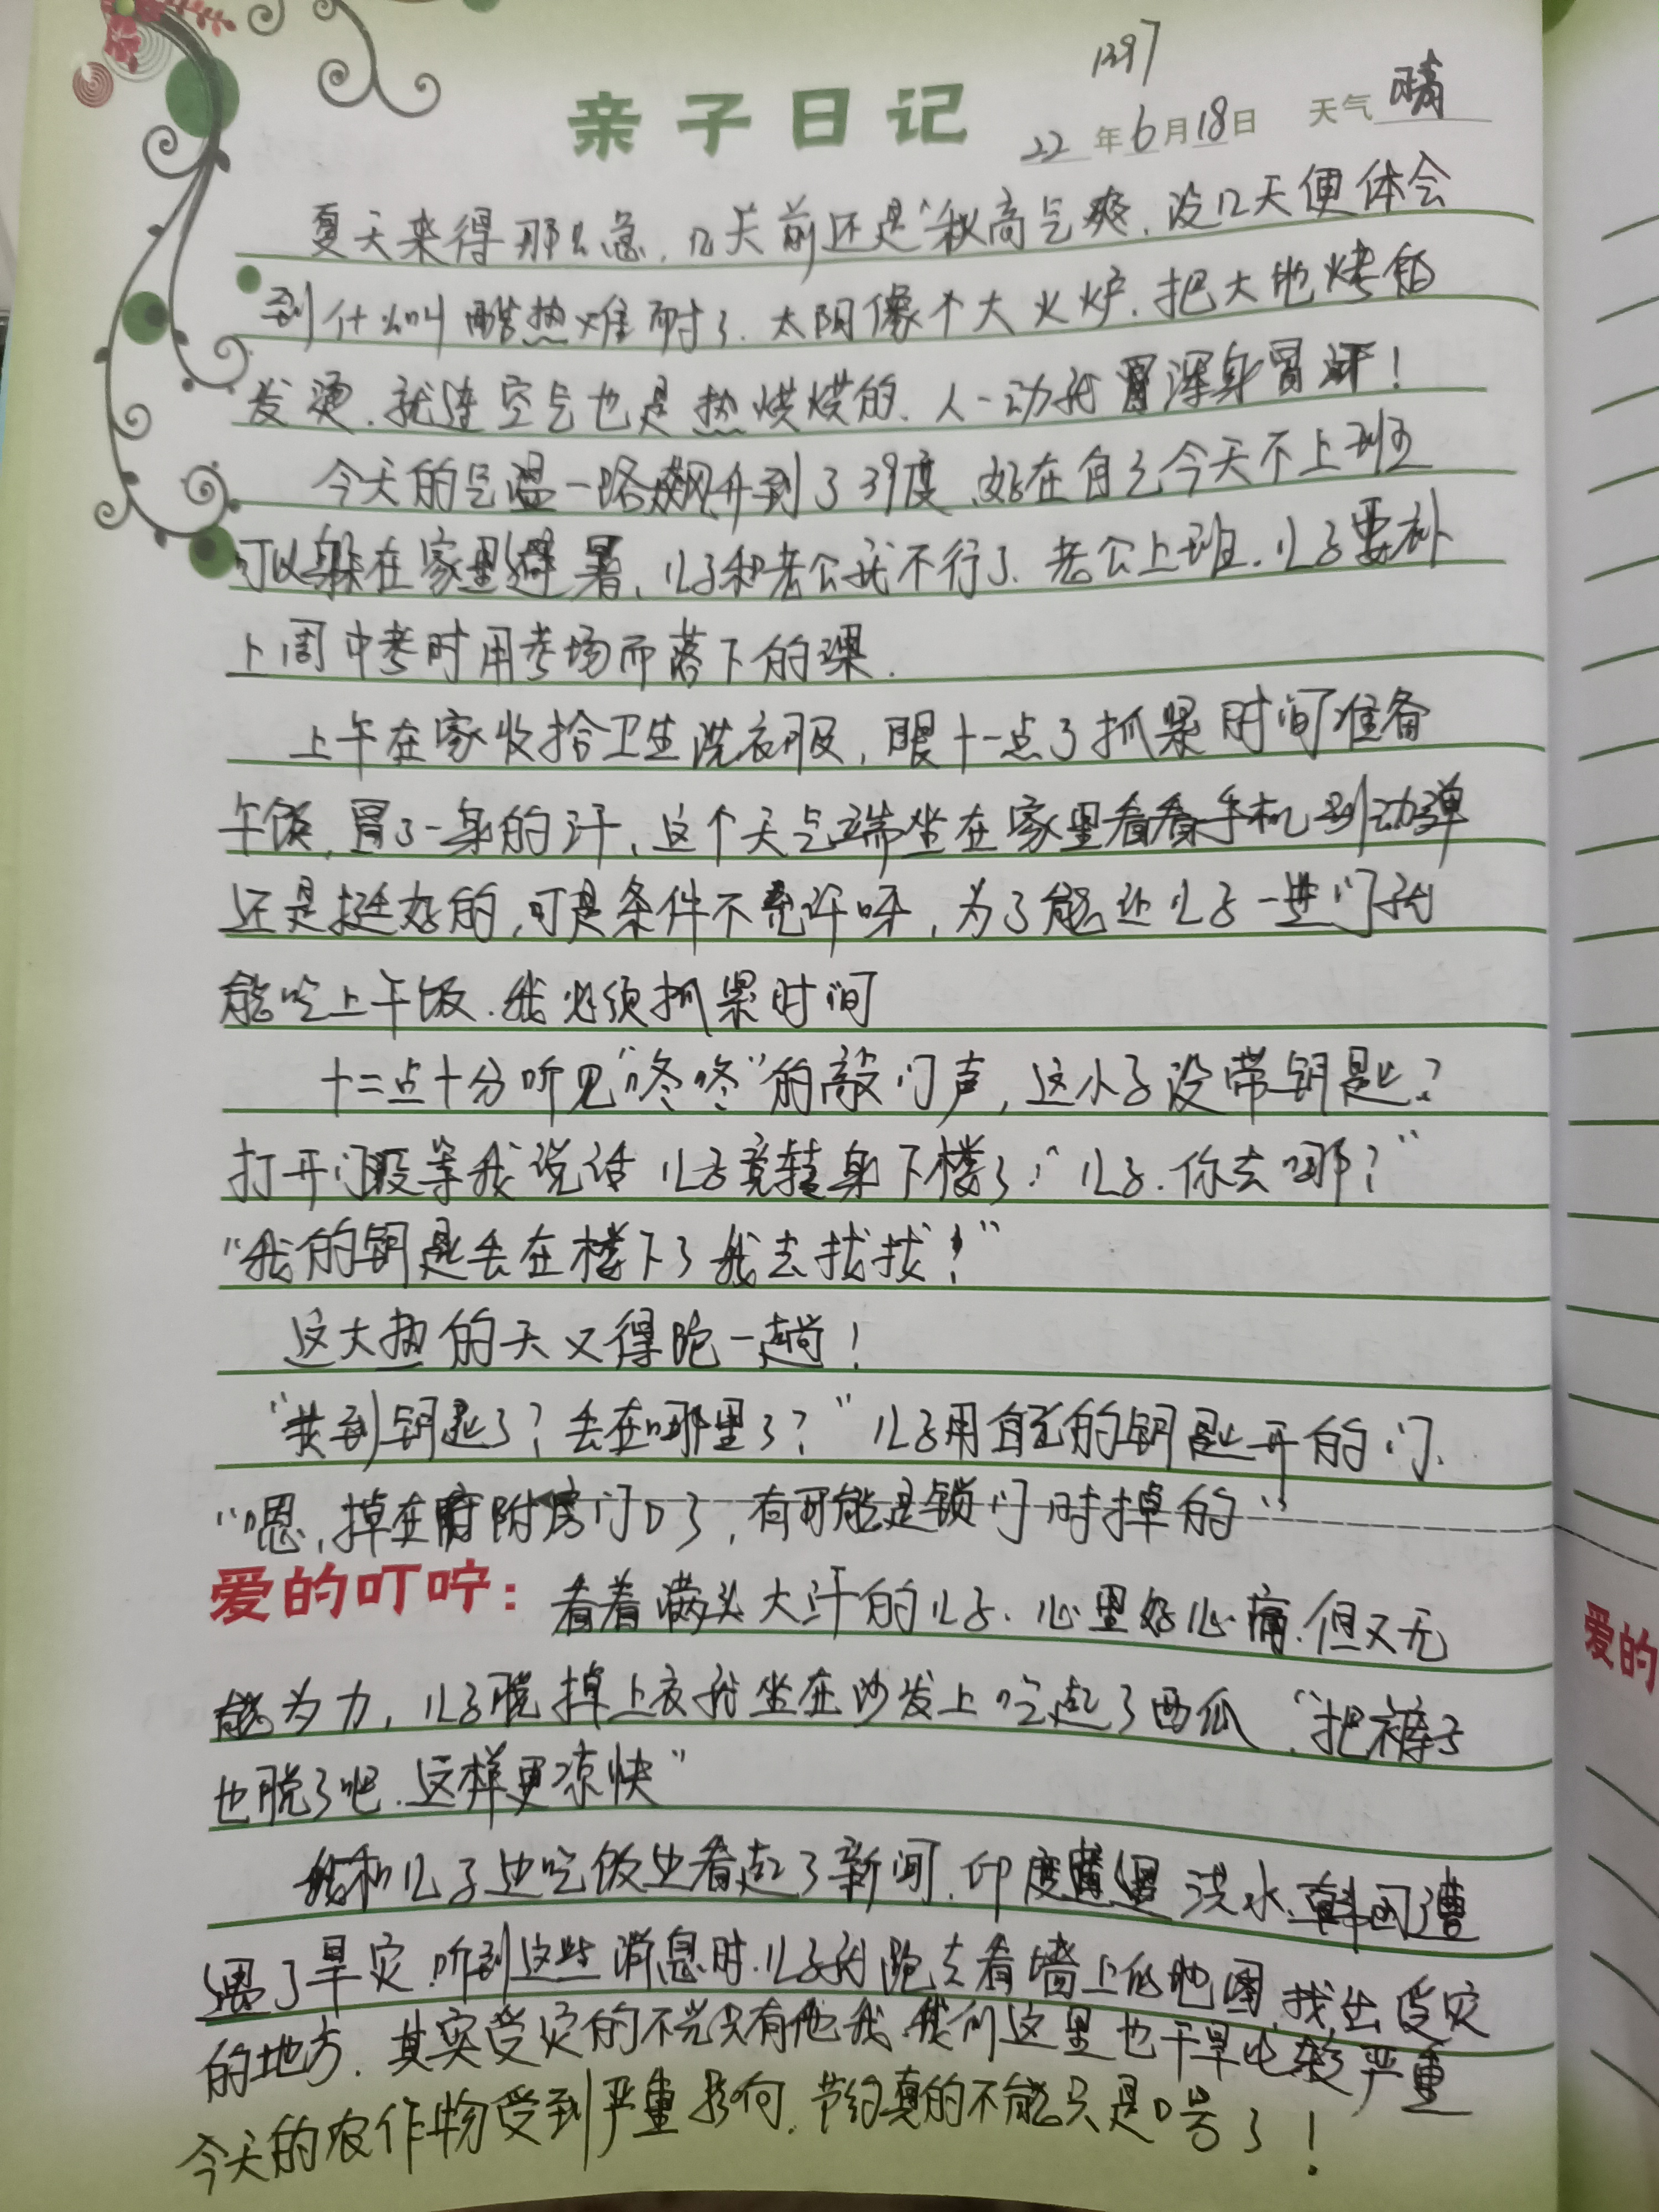 1397
亲子日记 22年6月18日 天气 晴
夏天来得那么急,几天前还是"秋高气爽,没几天便体会
到什么叫酷热难耐了.太阳像个大火炉.把大地烤的
发烫.就连空气也是热烘烘的.人一动就浑身冒汗!
今天的气温一路飙升到了39度,好在自己今天不上班
可以躲在家里避暑,儿子和老公就不行了.老公上班.儿子要补
上周中考时用考场而落下的课.
上午在家收拾卫生洗衣服,眼十一点了抓紧时间准备
午饭,冒了一身的汗,这个天气端坐在家里看看手机别动弹
还是挺好的,可是条件不允许呀,为了能让儿子一进门就
能吃上午饭.我必须抓紧时间
十二点十分听见"咚咚"的敲门声,这小子没带钥匙?
打开门没等我说话 儿子竟转身下楼了"儿子.你去哪?"
"我的钥匙丢在楼下了我去找找!"
这大热的天又得跑一趟!
"找到钥匙了?丢在哪里了?"儿子用自己的钥匙开的门.
"嗯,掉在附房门口了,有可能是锁门时掉的"
爱的叮咛: 看着满头大汗的儿子.心里好心痛.但又无
能为力,儿子脱掉上衣就坐在沙发上吃起了西瓜,"把裤子
也脱了吧.这样更凉快"
我和儿子边吃饭边看起了新闻.印度 洪水.韩国遭
遇了旱灾.听到这些消息时.儿子就跑去看墙上的地图.找出受灾
的地方.其实受灾的不光只有他我.我们这里也干旱比较严重
今天的农作物受到严重影响.节约真的不能只是口号了!
爱的